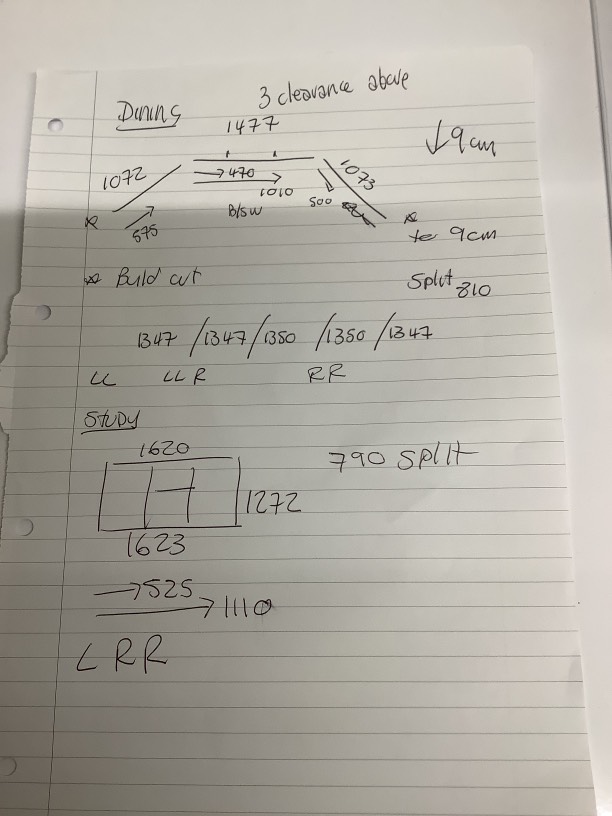 Dining 3 clearance above
1477
↓9cm
1072 → 470 1073
→ 1010
575 B/SW 500
9cm
Build out Split 810
1347 / 1347 / 1350 / 1350 / 1347
LL LL R RR
STUDY
1620 790 Split
1272
1623
→ 525
→ 1110
L R R